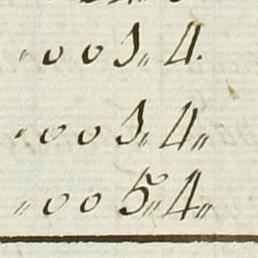 „ 0 0 3 „ 4.
„ 0 0 3 „ 4 „
„ 0 0 5 „ 4 „